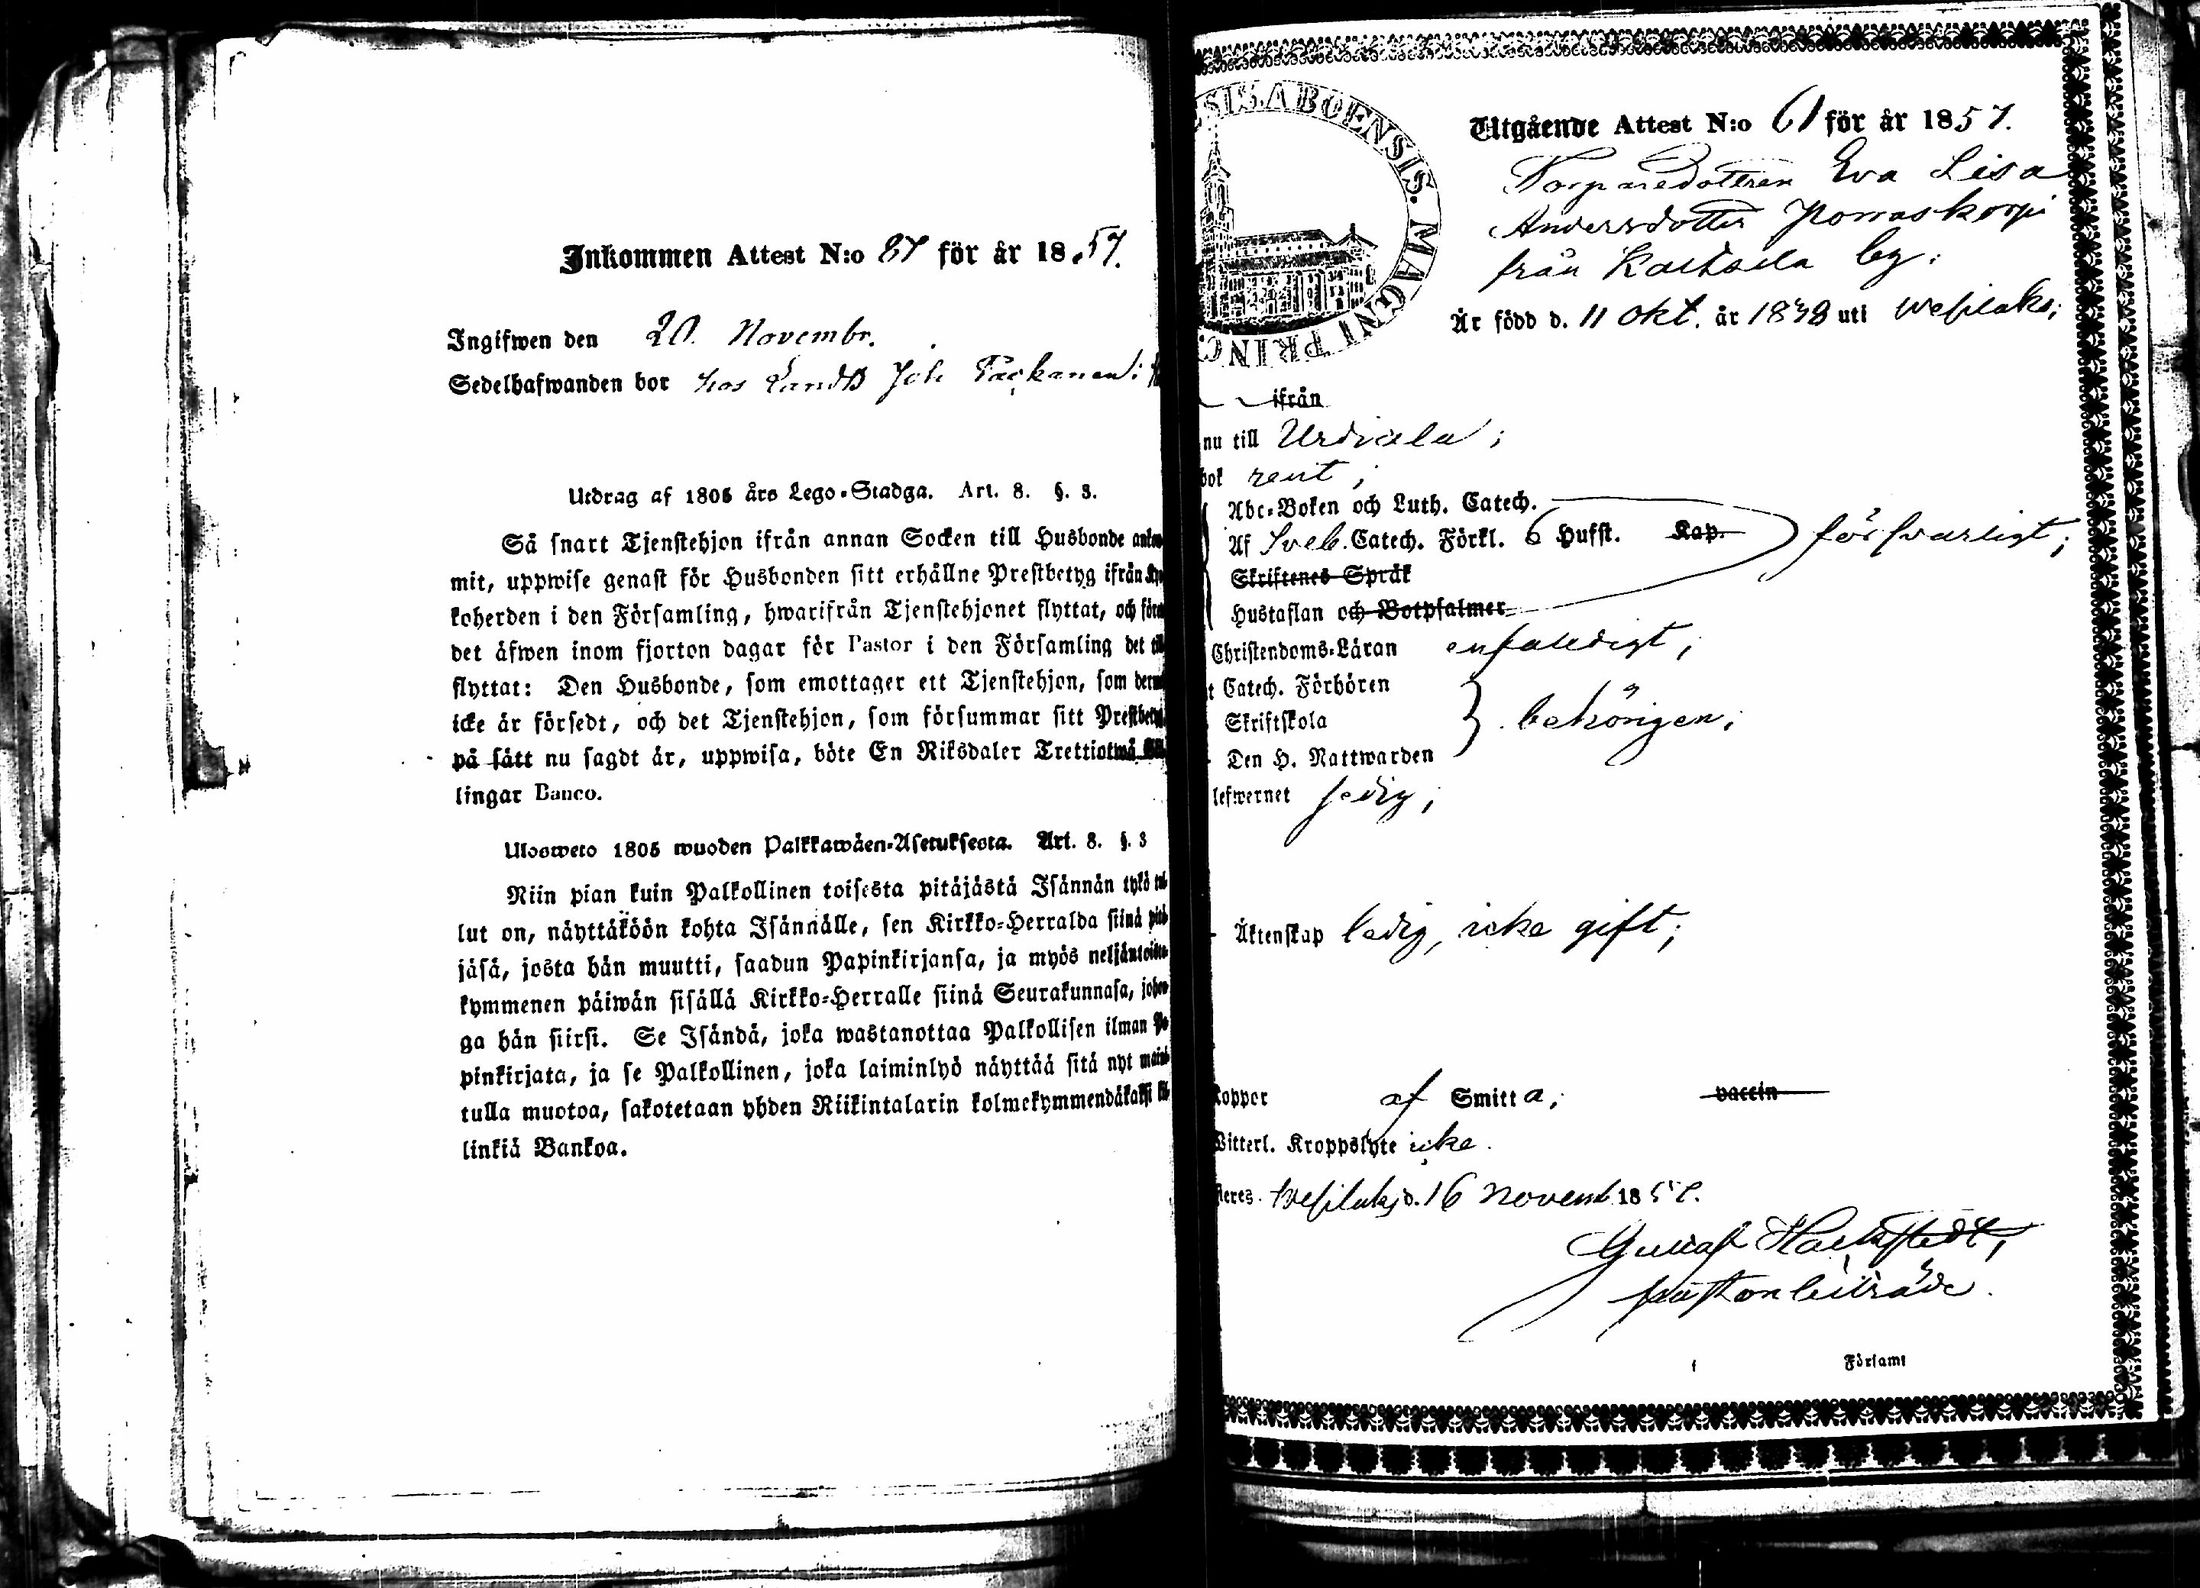 Inkommen Attest N:o 87 för år 1857.
Ingifwen den 20. Novembr.
Sedelhafwanden bor hos Joh
Utdrag af 1805 års Lego-Stadga. Art. 8. §. 3.
Så snart Tjenstehjon ifrån annan Socken till Husbonde
mit, uppwise genast för Husbonden sitt erhållne Prestbetyg ifrån
koherden i den Församling, hwarifrån Tjenstehjonet flyttat, och
det äfwen inom fjorton dagar för Pastor i den Församling det
flyttat: Den Husbonde, som emottager ett Tjenstehjon, som
icke är försedt, och det Tjenstehjon, som försummar sitt
på sätt nu sagdt är, uppwisa, böte En Riksdaler Trettiotwå
lingar Banco.
Ulosweto 1805 wuoden Palkkawäen-Asetuksesta. Art. 8. §. 3
Niin pian kuin Palkollinen toisesta pitäjästä Isännän tykö
lut on, näyttäköön kohta Isännälle, sen Kirkko-Herralda siinä
jäsä, josta hän muutti, saadun Papinkirjansa, ja myös
kymmenen päiwän sisällä Kirkko-Herralle siinä Seurakunnasa,
ga hän siirsi. Se Isändä, joka wastanottaa Palkollisen ilman
pinkirjata, ja se Palkollinen, joka laiminlyö näyttää sitä nyt
tulla muotoa, sakotetaan yhden Riikintalarin
linkiä Bankoa.
SIS.ABOENSIS. MAGNI PRINC
Utgående Attest N:o 61 för år 1857.
Torparedottren Eva Lisa
Andersdotter Porraskorpi
från by.
Är född d. 11 Okt. år 1838 uti Wesilaks;
ifrån
nu till Urdiala;
bok rent;
Abc-Boken och Luth. Catech.
Af Sveb. Catech. Förkl. 6 Hufst. Kap. försvarligt;
Skriftenes Språk
Hustaflan och Botpsalmer
Christendoms-Läran enfaldigt;
t Catech. Förhören
Skriftskola behörigen;
Den H. Nattwarden
lefwernet sedig;
Äktenskap ledig, icke gift;
Koppor af Smitta; vaccin
Witterl. Kroppslyte icke.
Wesilaks d. 16 Novemb. 1857.
Gustaf
Församl